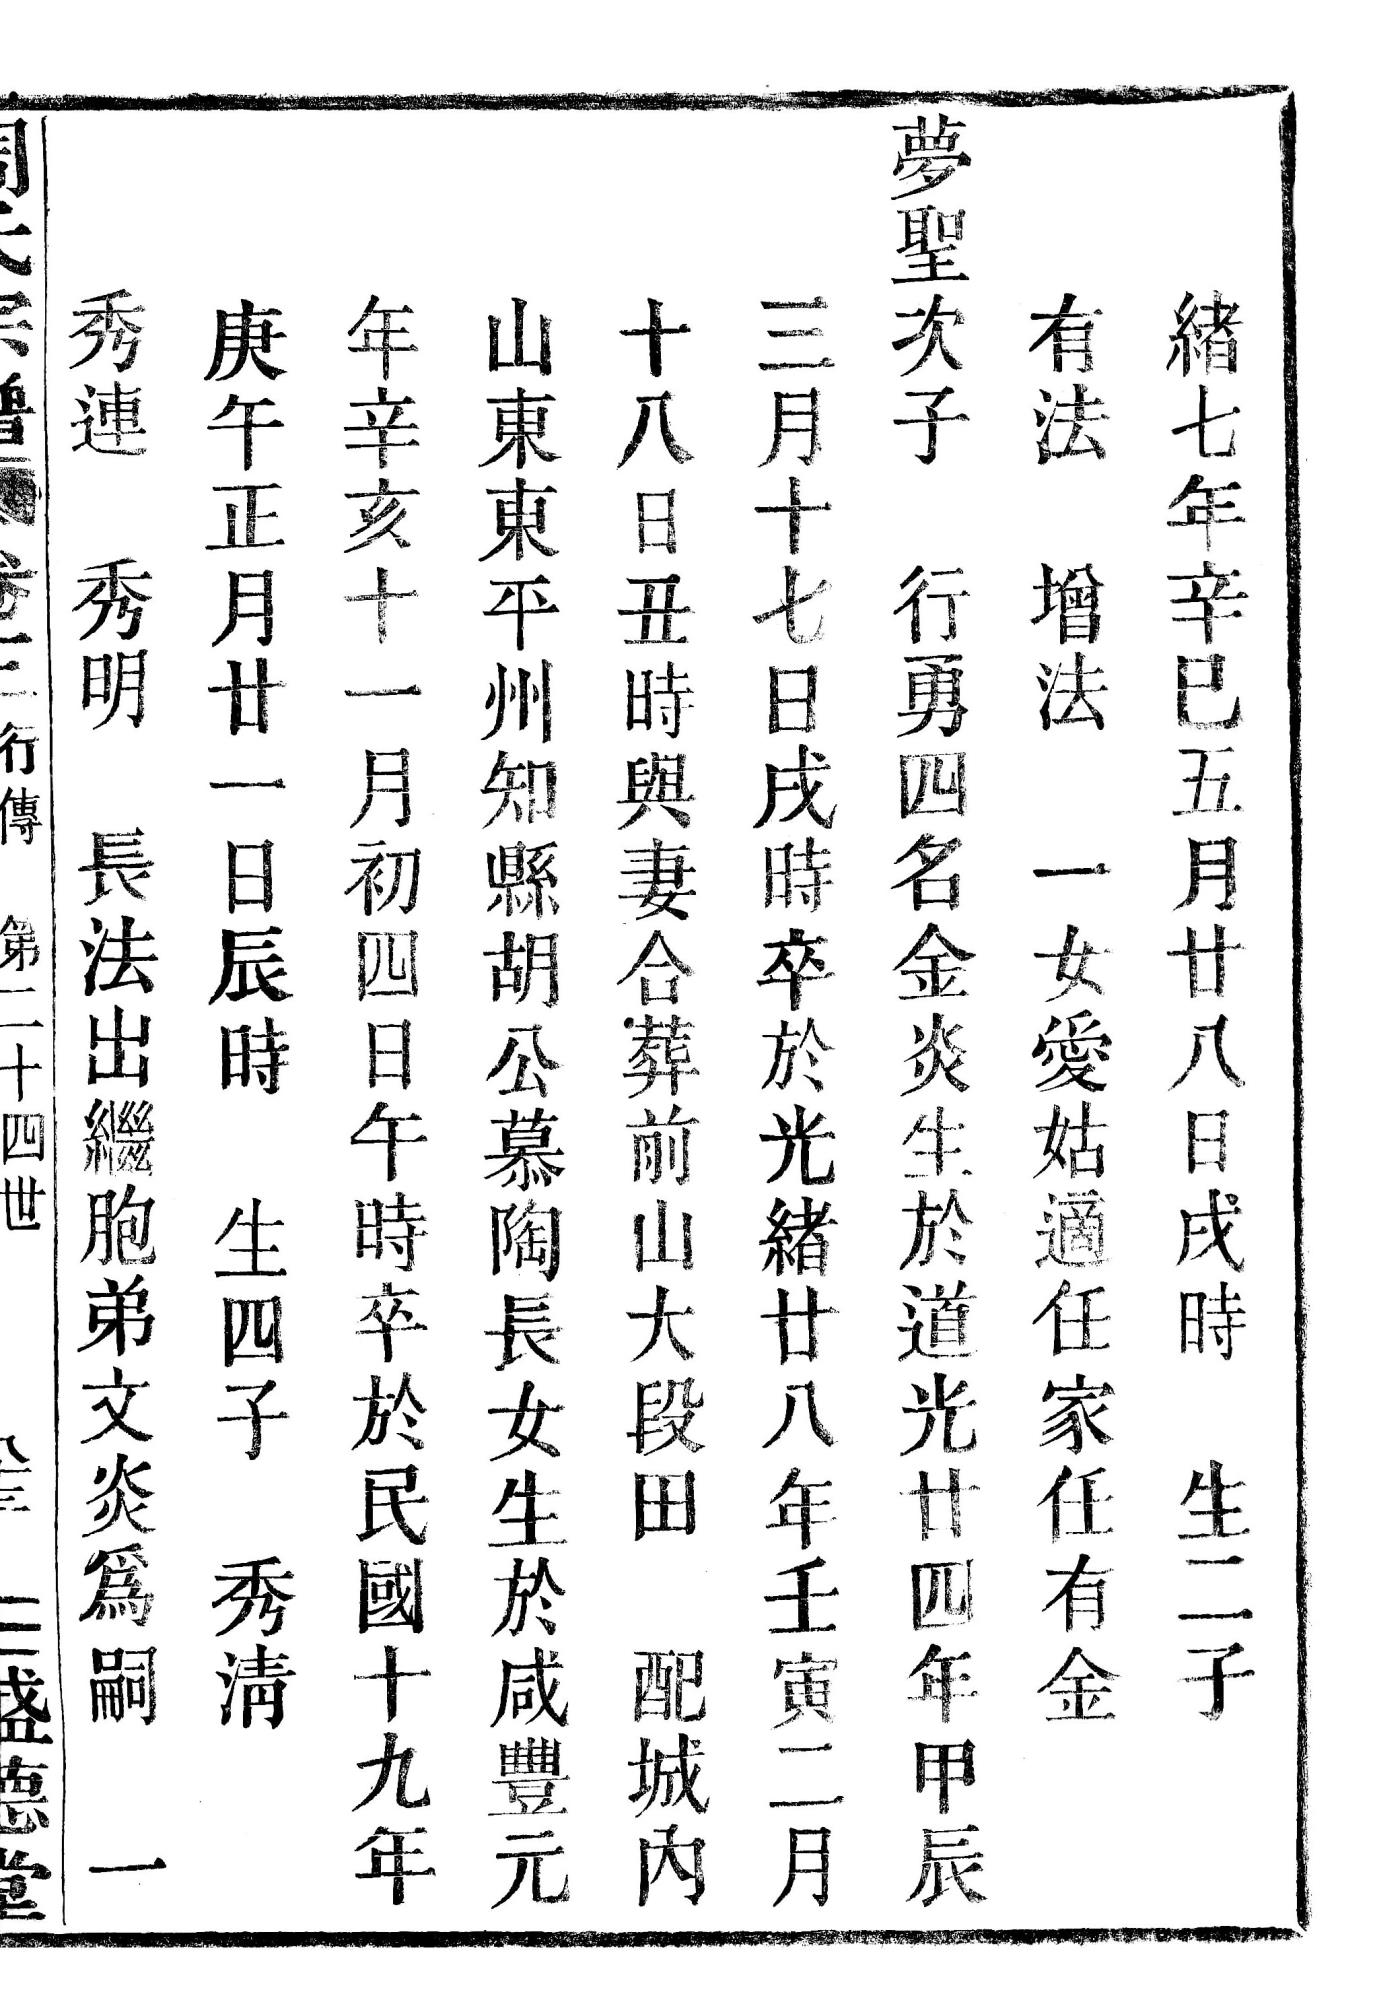 緒七年辛巳五月廿八日戌時　生二子
有法　增法　一女愛姑適任家任有金
夢聖次子　行勇四名金炎生於道光廿四年甲辰
三月十七日戌時卒於光緒廿八年壬寅二月
十八日丑時與妻合葬前山大段田　配城內
山東東平州知縣胡公慕陶長女生於咸豐元
年辛亥十一月初四日午時卒於民國十九年
庚午正月廿一日辰時　生四子　秀淸
秀連　秀明　長法出繼胞弟文炎爲嗣　一
周氏宗譜　卷三行傳　第二十四世　三盛德堂